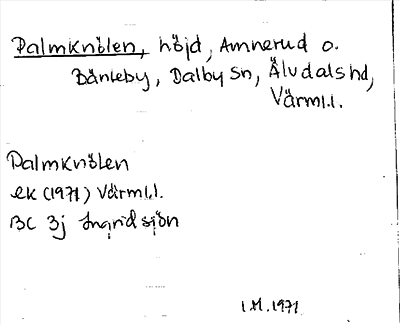 Palmknölen, höjd, Amnerud o.
Bänteby, Dalby sn, Älvdals hd,
Värml.l.
Palmknölen
ek (1971) Värml.l.
BC 3j Ingridsjön
I.M. 1971